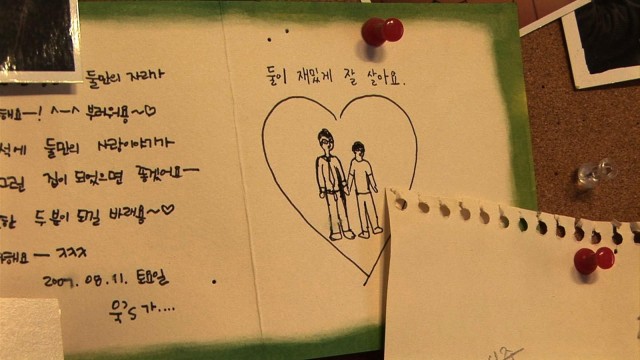 둘만의 자리가
해요~! ^-^ 부러워용~♡
석에 둘만의 사랑이야기가
그런 집이 되었으면 좋겠어요~
한 두분이 되길 바래용~♡
해요~ ㅈㅈㅈ
2007. 08. 11. 토요일
욱's 가....
둘이 재밌게 잘 살아요.